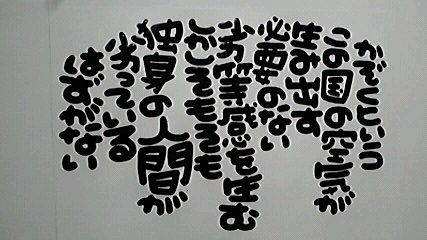 かぞくという
この国の空気が
生み出す
必要のない
劣等感を生む
しかしそもそも
独身の人間が
劣っている
はずがない